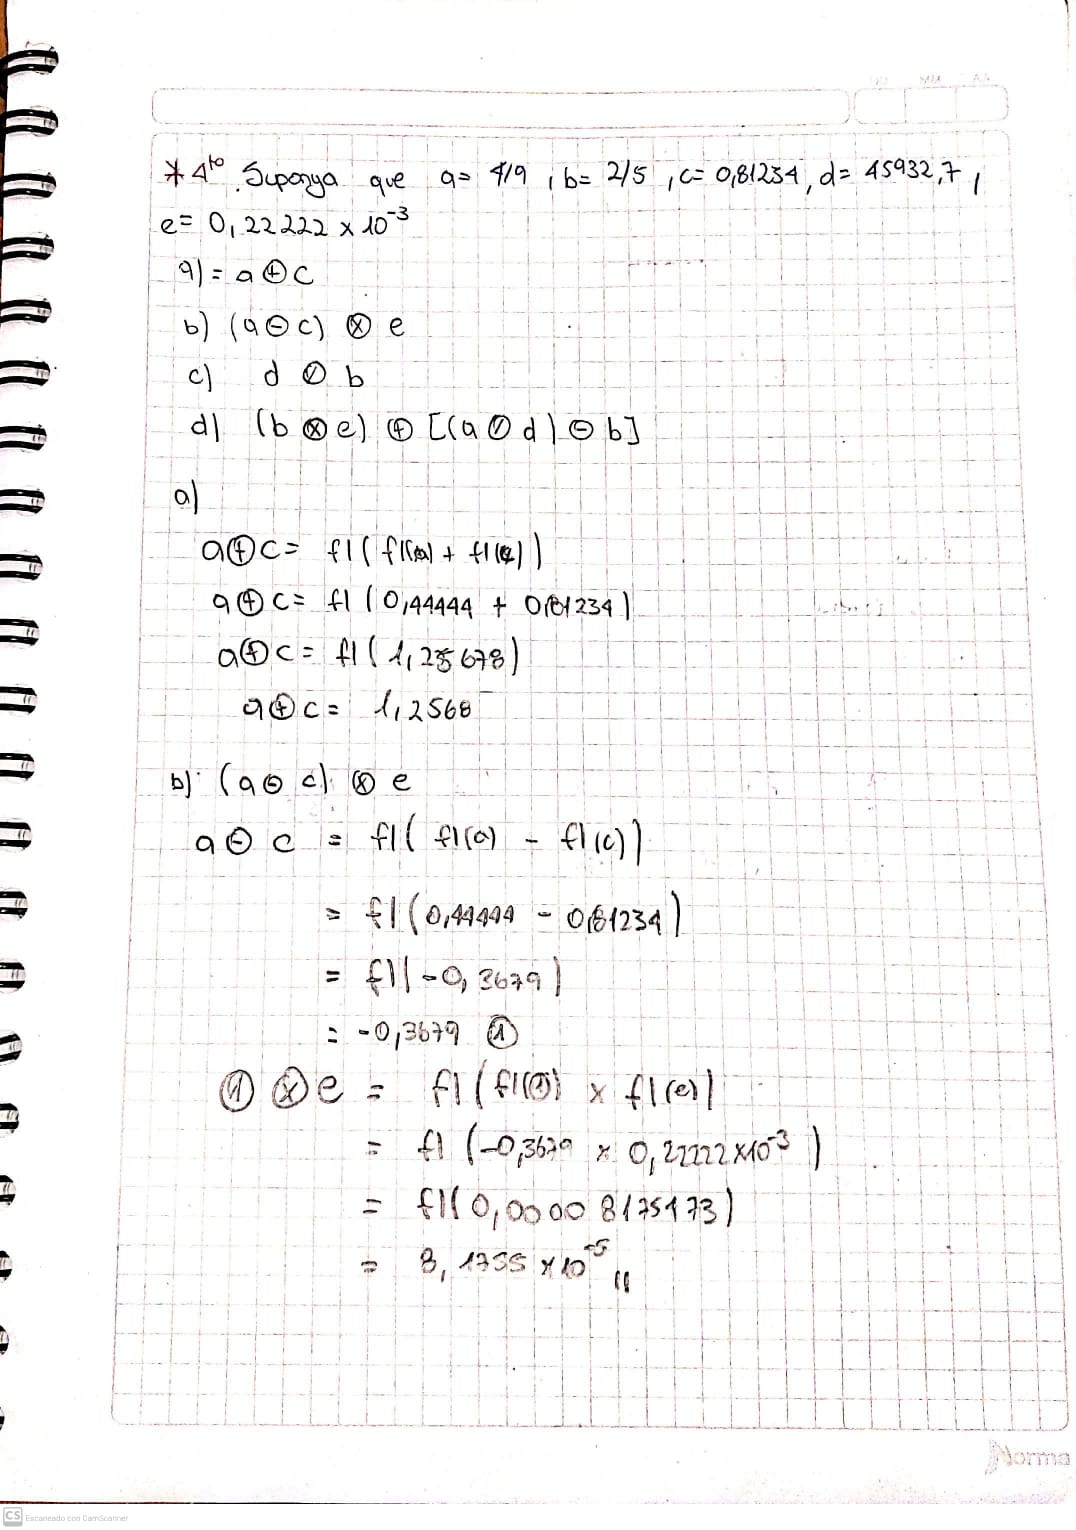 MM AA
* 4to. Suponga que a= 4/9 , b= 2/5 , c= 0,81234 , d= 45932,7 ,
e= 0,22222 x 10⁻³
a) = a ⊕ c
b) (a ⊖ c) ⊗ e
c) d ⊘ b
d) (b ⊗ e) ⊕ [(a ⊘ d) ⊖ b]
a)
a ⊕ c = fl( fl(a) + fl(c))
a ⊕ c = fl (0,44444 + 0,81234)
a ⊕ c = fl( 1,25678)
a ⊕ c = 1,2568
b) (a ⊖ c) ⊗ e
a ⊖ c = fl( fl(a) - fl(c))
= fl(0,44444 - 0,81234)
= fl(-0,3679)
= -0,3679 ①
① ⊗ e = fl( fl(①) x fl(e))
= fl (-0,3679 x 0,22222x10⁻³)
= fl(0,00008175473)
= 8,1755 x 10⁻⁵ "
Norma
CS Escaneado con CamScanner